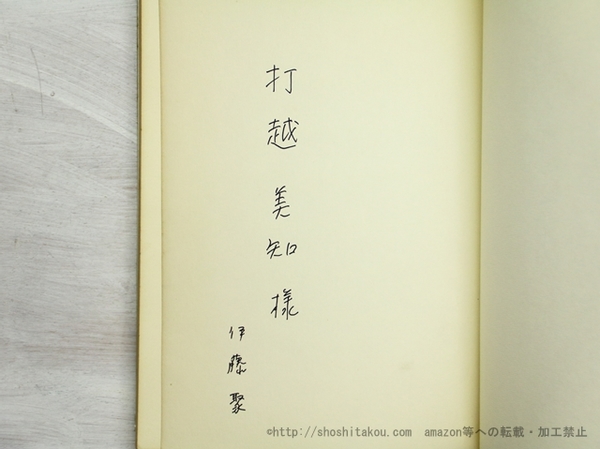 打越美知様
伊藤聚
©http://shoshitakou.com amazon等への転載・加工禁止